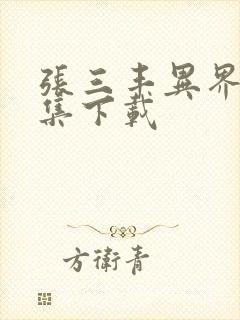 張三丰異界
集下載
方衛青